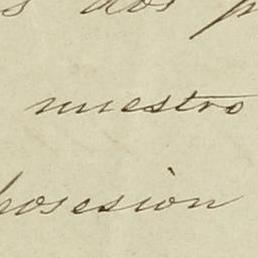 dos
nuestro
posesiòn